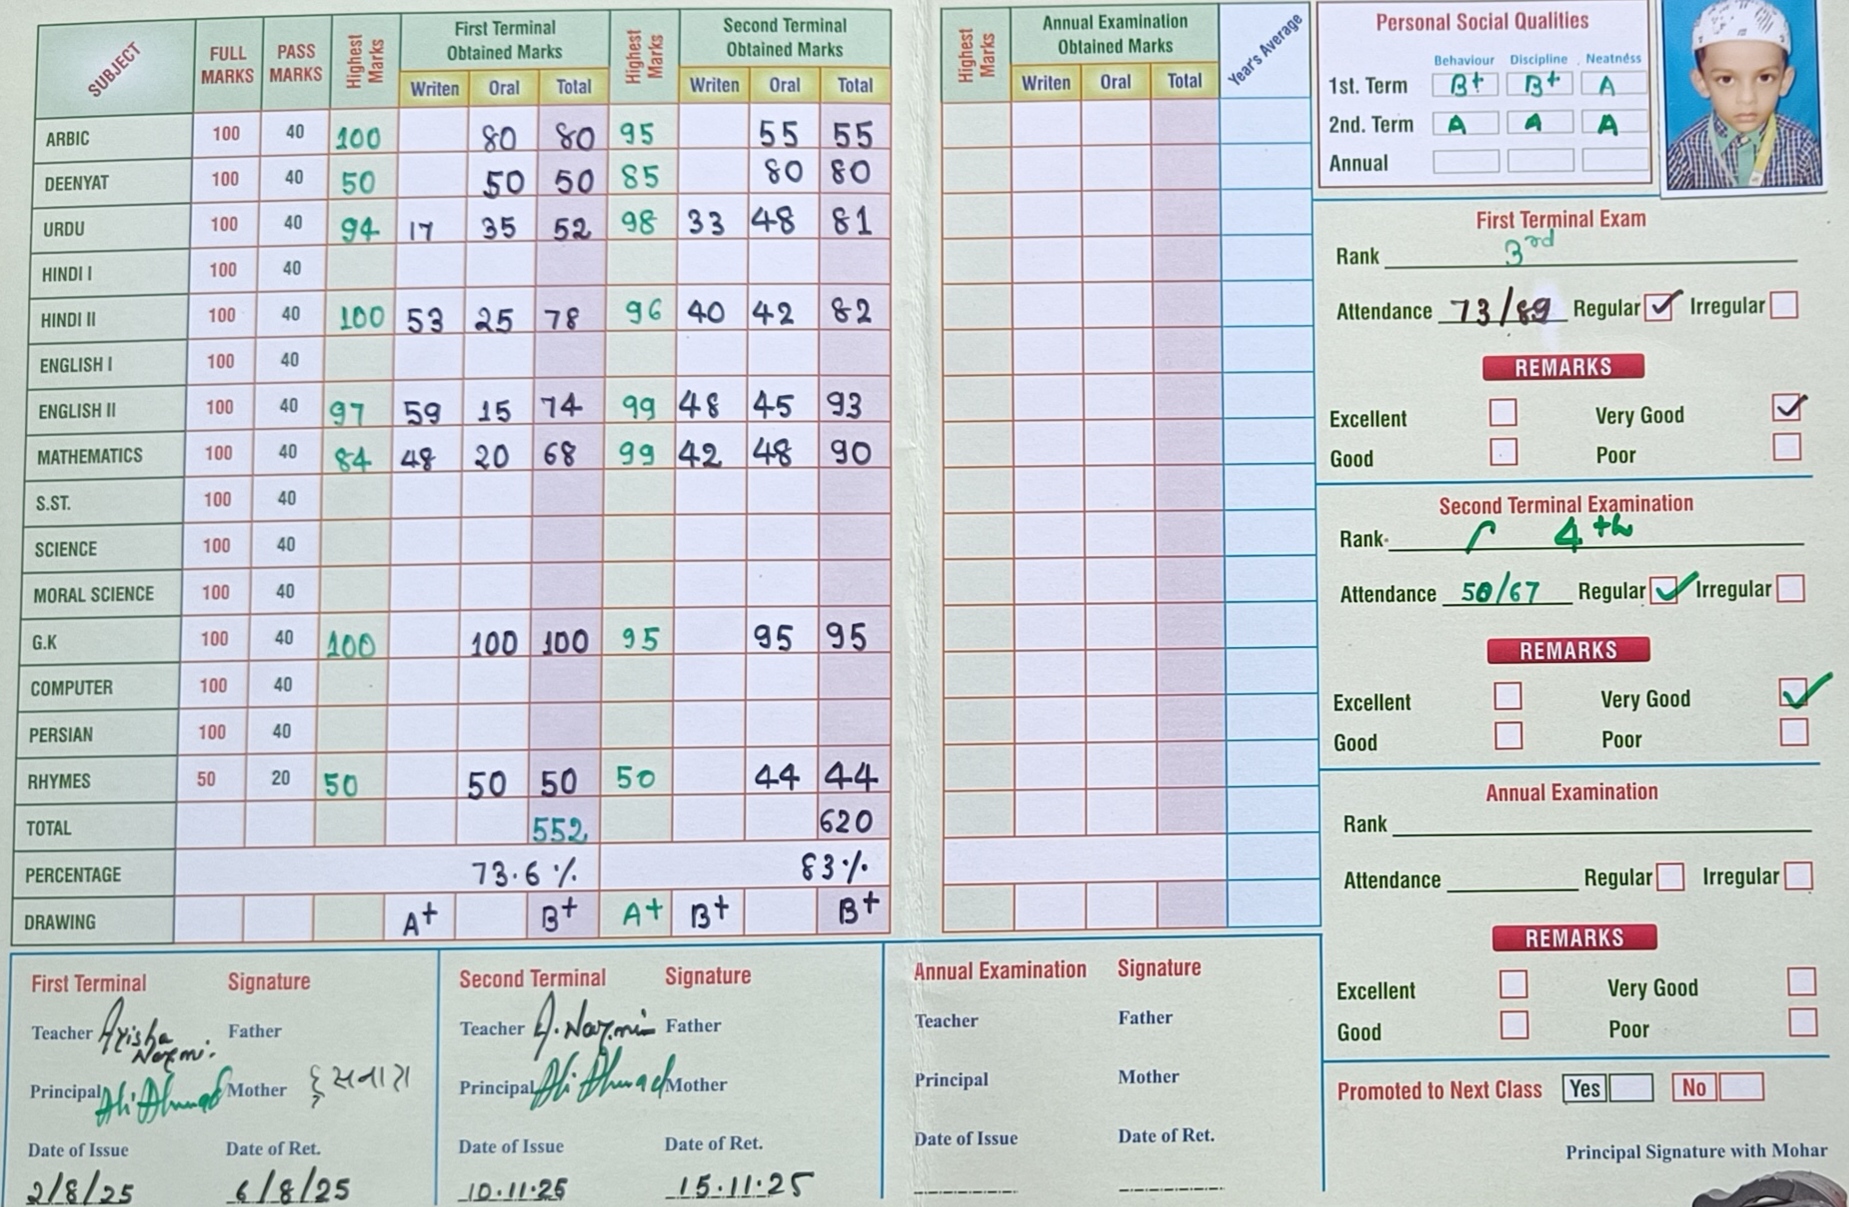 SUBJECT FULL MARKS PASS MARKS Highest Marks First Terminal Obtained Marks Highest Marks Second Terminal Obtained Marks
Writen Oral Total Writen Oral Total
ARBIC 100 40 100 80 80 95 55 55
DEENYAT 100 40 50 50 50 85 80 80
URDU 100 40 94 17 35 52 98 33 48 81
HINDI I 100 40
HINDI II 100 40 100 53 25 78 96 40 42 82
ENGLISH I 100 40
ENGLISH II 100 40 97 59 15 74 99 48 45 93
MATHEMATICS 100 40 84 48 20 68 99 42 48 90
S.ST. 100 40
SCIENCE 100 40
MORAL SCIENCE 100 40
G.K 100 40 100 100 100 95 95 95
COMPUTER 100 40
PERSIAN 100 40
RHYMES 50 20 50 50 50 50 44 44
TOTAL 552 620
PERCENTAGE 73.6 % 83%
DRAWING A+ B+ A+ B+ B+
Highest Marks Annual Examination Obtained Marks Year's Average
Writen Oral Total
Personal Social Qualities
Behaviour Discipline Neatness
1st. Term B+ B+ A
2nd. Term A A A
Annual
First Terminal Exam
Rank 3rd
Attendance 73/89 Regular Irregular
REMARKS
Excellent Very Good
Good Poor
Second Terminal Examination
Rank 4th
Attendance 50/67 Regular Irregular
REMARKS
Excellent Very Good
Good Poor
Annual Examination
Rank
Attendance Regular Irregular
REMARKS
Excellent Very Good
Good Poor
Promoted to Next Class Yes No
Principal Signature with Mohar
First Terminal Signature
Teacher Arisha Nazmi. Father
Principal Ali Ahmad Mother
Date of Issue Date of Ret.
2/8/25 6/8/25
Second Terminal Signature
Teacher A. Nazmi Father
Principal Ali Ahmad Mother
Date of Issue Date of Ret.
10.11.25 15.11.25
Annual Examination Signature
Teacher Father
Principal Mother
Date of Issue Date of Ret.